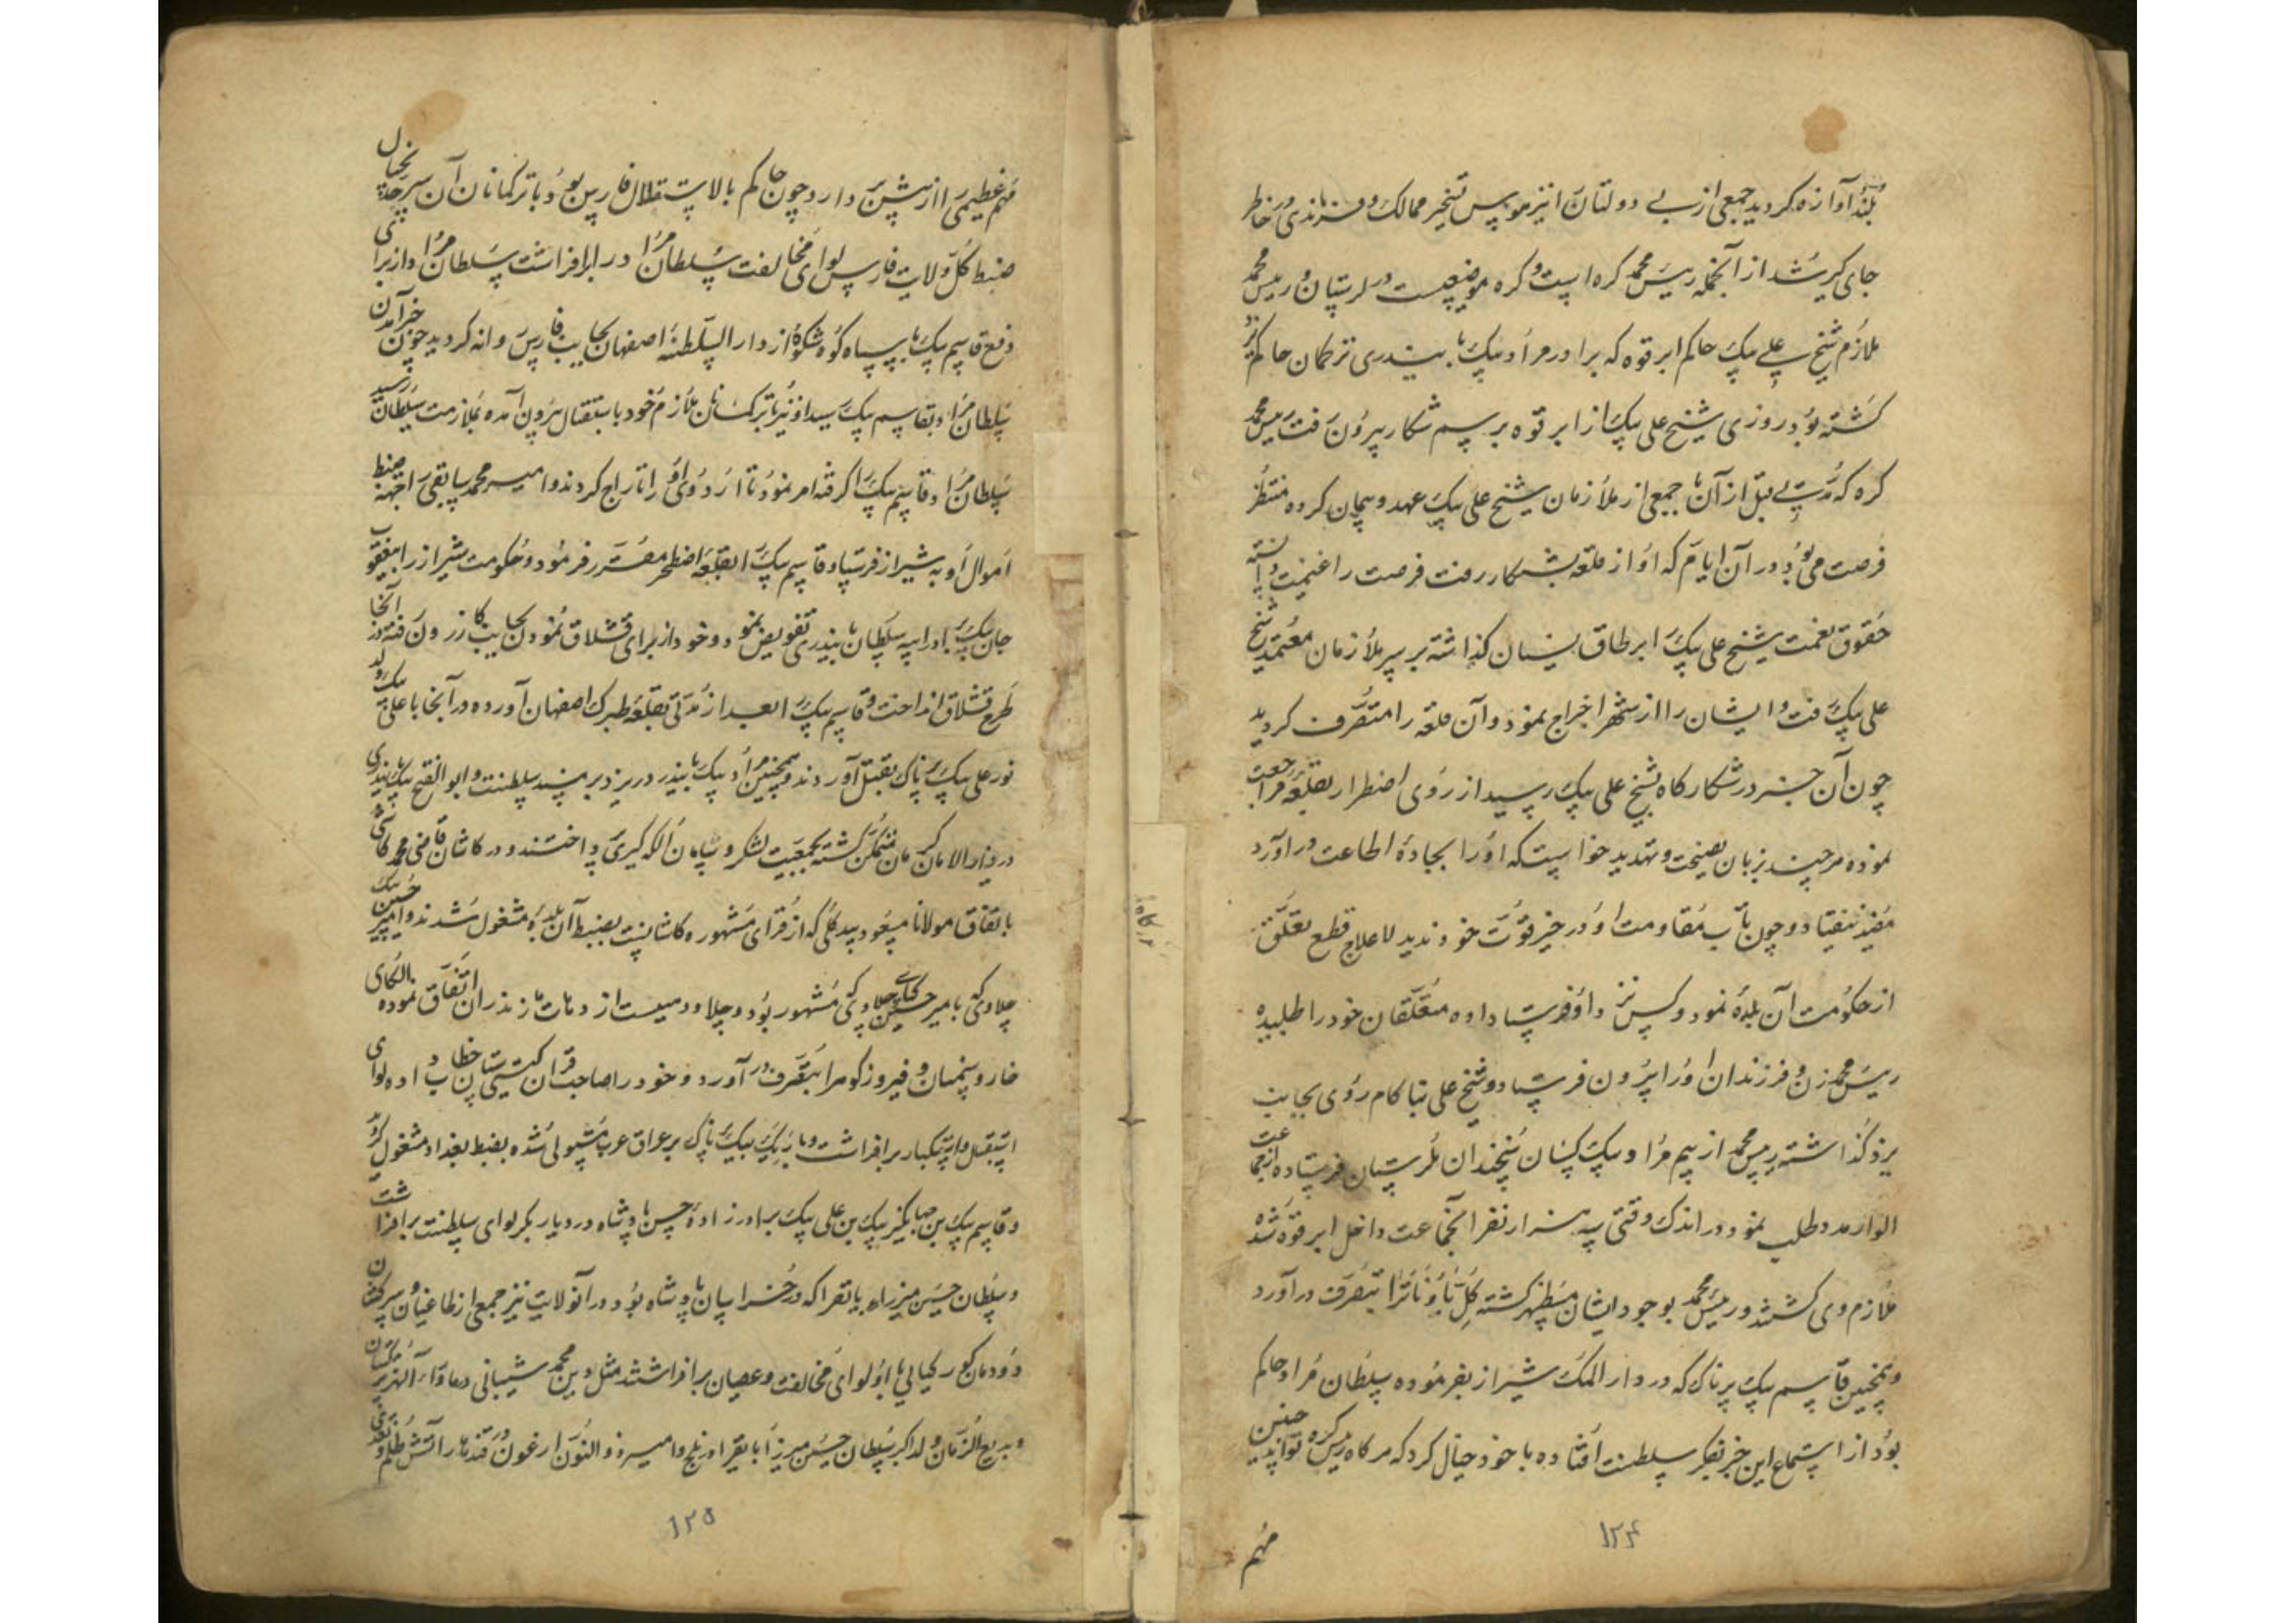 بلند آوازه گردید جمعی از بی دولتان را نیز هوس تسخیر ممالک و فرماندهی در خاطر
جای گیر شد از آنجمله رییس محمد کره است و کره موضعیست در لرستان و رییس محمد
ملازم شیخ علی بیک حاکم ابرقوه که برادر مراد بیک بایندری ترکمان حاکم یزد
گشته بود روزی شیخ علی بیک از ابرقوه برسم شکار بیرون رفت رییس محمد
کره که مدتی قبل از آن با جمعی از ملازمان شیخ علی بیک عهد و پیمان کرده منتظر
فرصت می بود در آن ایام که او از قلعه بشکار رفت فرصت را غنیمت دانسته
حقوق نعمت شیخ علی بیک را بر طاق نسیان گذاشته بر سر ملازمان معتمد شیخ
علی بیک رفت و ایشان را از شهر اخراج نمود و آن قلعه را متصرف گردید
چون آن خبر در شکارگاه بشیخ علی بیک رسید از روی اضطرار بقلعه مراجعت
نموده هر چند بزبان نصیحت و تهدید خواست که او را بجادهٔ اطاعت در آورد
مفید نیفتاد و چون تاب مقاومت او در حیز قوت خود ندید لاعلاج قطع تعلق
از حکومت آن بلده نمود و کس نزد او فرستاده متعلقان خود را طلبیده
رییس محمد زن و فرزندان او را بیرون فرستاد و شیخ علی بناکام روی بجانب
یزد گذاشته رییس محمد از بیم مراد بیک کسان بخندان لرستان فرستاده از جماعت
الوار مدد طلب نمود در اندک وقتی سه هزار نفر از آنجماعت داخل ابرقوه شده
ملازم وی گشتند و رییس محمد بوجود ایشان مستظهر گشته کل را بتصرف در آورد
و همچنین قاسم بیک پرناک که در دار الملک شیراز بفرموده سلطان مراد حاکم
بود از استماع این خبر بفکر سلطنت افتاده با خود خیال کرد که هر گاه رییس کره چنین تواند
مهم
۱۲۴
مهم عظیمی را از پیش برد چون حاکم بالاستقلال فارس بود با ترکمانان آن سرحد بخیال
ضبط کل ولایت فارس لوای مخالفت سلطان مراد را برافراشت سلطان مراد از برای
دفع قاسم بیک با سپاه کوه شکوه از دار السلطنهٔ اصفهان بجانب فارس روانه گردید چون خبر آمدن
سلطان مراد بقاسم بیک رسید او نیز با ترکمانان ملازم خود باستقبال بیرون آمده بملازمت سلطان رسید
سلطان مراد قاسم بیک را گرفته امر نمود تا اردوی او را تاراج کردند و امیر محمد را جهة ضبط
اموال او به شیراز فرستاد و قاسم بیک را بقلعه اصطخر مقرر فرمود و حکومت شیراز را بیعقوب
جان بیک برادر ایبه سلطان بایندری تفویض نمود و خود از برای قشلاق نمودن بجانب کازرون رفته در آنجا
طرح قشلاق انداخت و قاسم بیک را بعد از مدتی بقلعه طبرک اصفهان آورده در آنجا با علی بیک ولد
نور علی بیک پرناک بقتل آوردند و همچنین مراد بیک بایندر در یزد بر مسند سلطنت و ابو الفتح بیک بایندری
در دار الامان کرمان متمکن گشته بجمعیت لشکر و سامان الکه گیری پرداختند و در کاشان قاضی محمد کاشی
باتفاق مولانا مسعود بیدگلی که از قرای مشهوره کاشانست بضبط آن بلده مشغول شدند و امیر حسین کیا
چلاوی که بامیر حسین کیای چلاوی مشهور بود و چلاو دهیست از دهات مازندران اتفاق نموده الکای
خوار و سمنان و فیروزکوه را بتصرف در آورد و خود را صاحب قران گیتی ستان خطاب داده لوای
استقلال و استکبار برافراشت و باریک بیک پرناک بر عراق عرب مستولی شده بضبط بغداد مشغول گردید
و قاسم بیک بن جهانگیر بیک بن علی بیک برادرزادهٔ حسن پادشاه در دیار بکر لوای سلطنت برافراشت
و سلطان حسین میرزاء بایقرا که در خراسان پادشاه بود در آنولایت نیز جمعی از طاغیان و سرکشان
دودمان گورکیانی با او لوای مخالفت و عصیان برافراشتند مثل محمد شیبانی در ماوراء النهر و ترکستان
و بدیع الزمان ولد اکبر سلطان حسین میرزا بایقرا در بلخ و امیر ذو النون ارغون در قندهار آتش ظلم و تعدی
۱۲۵